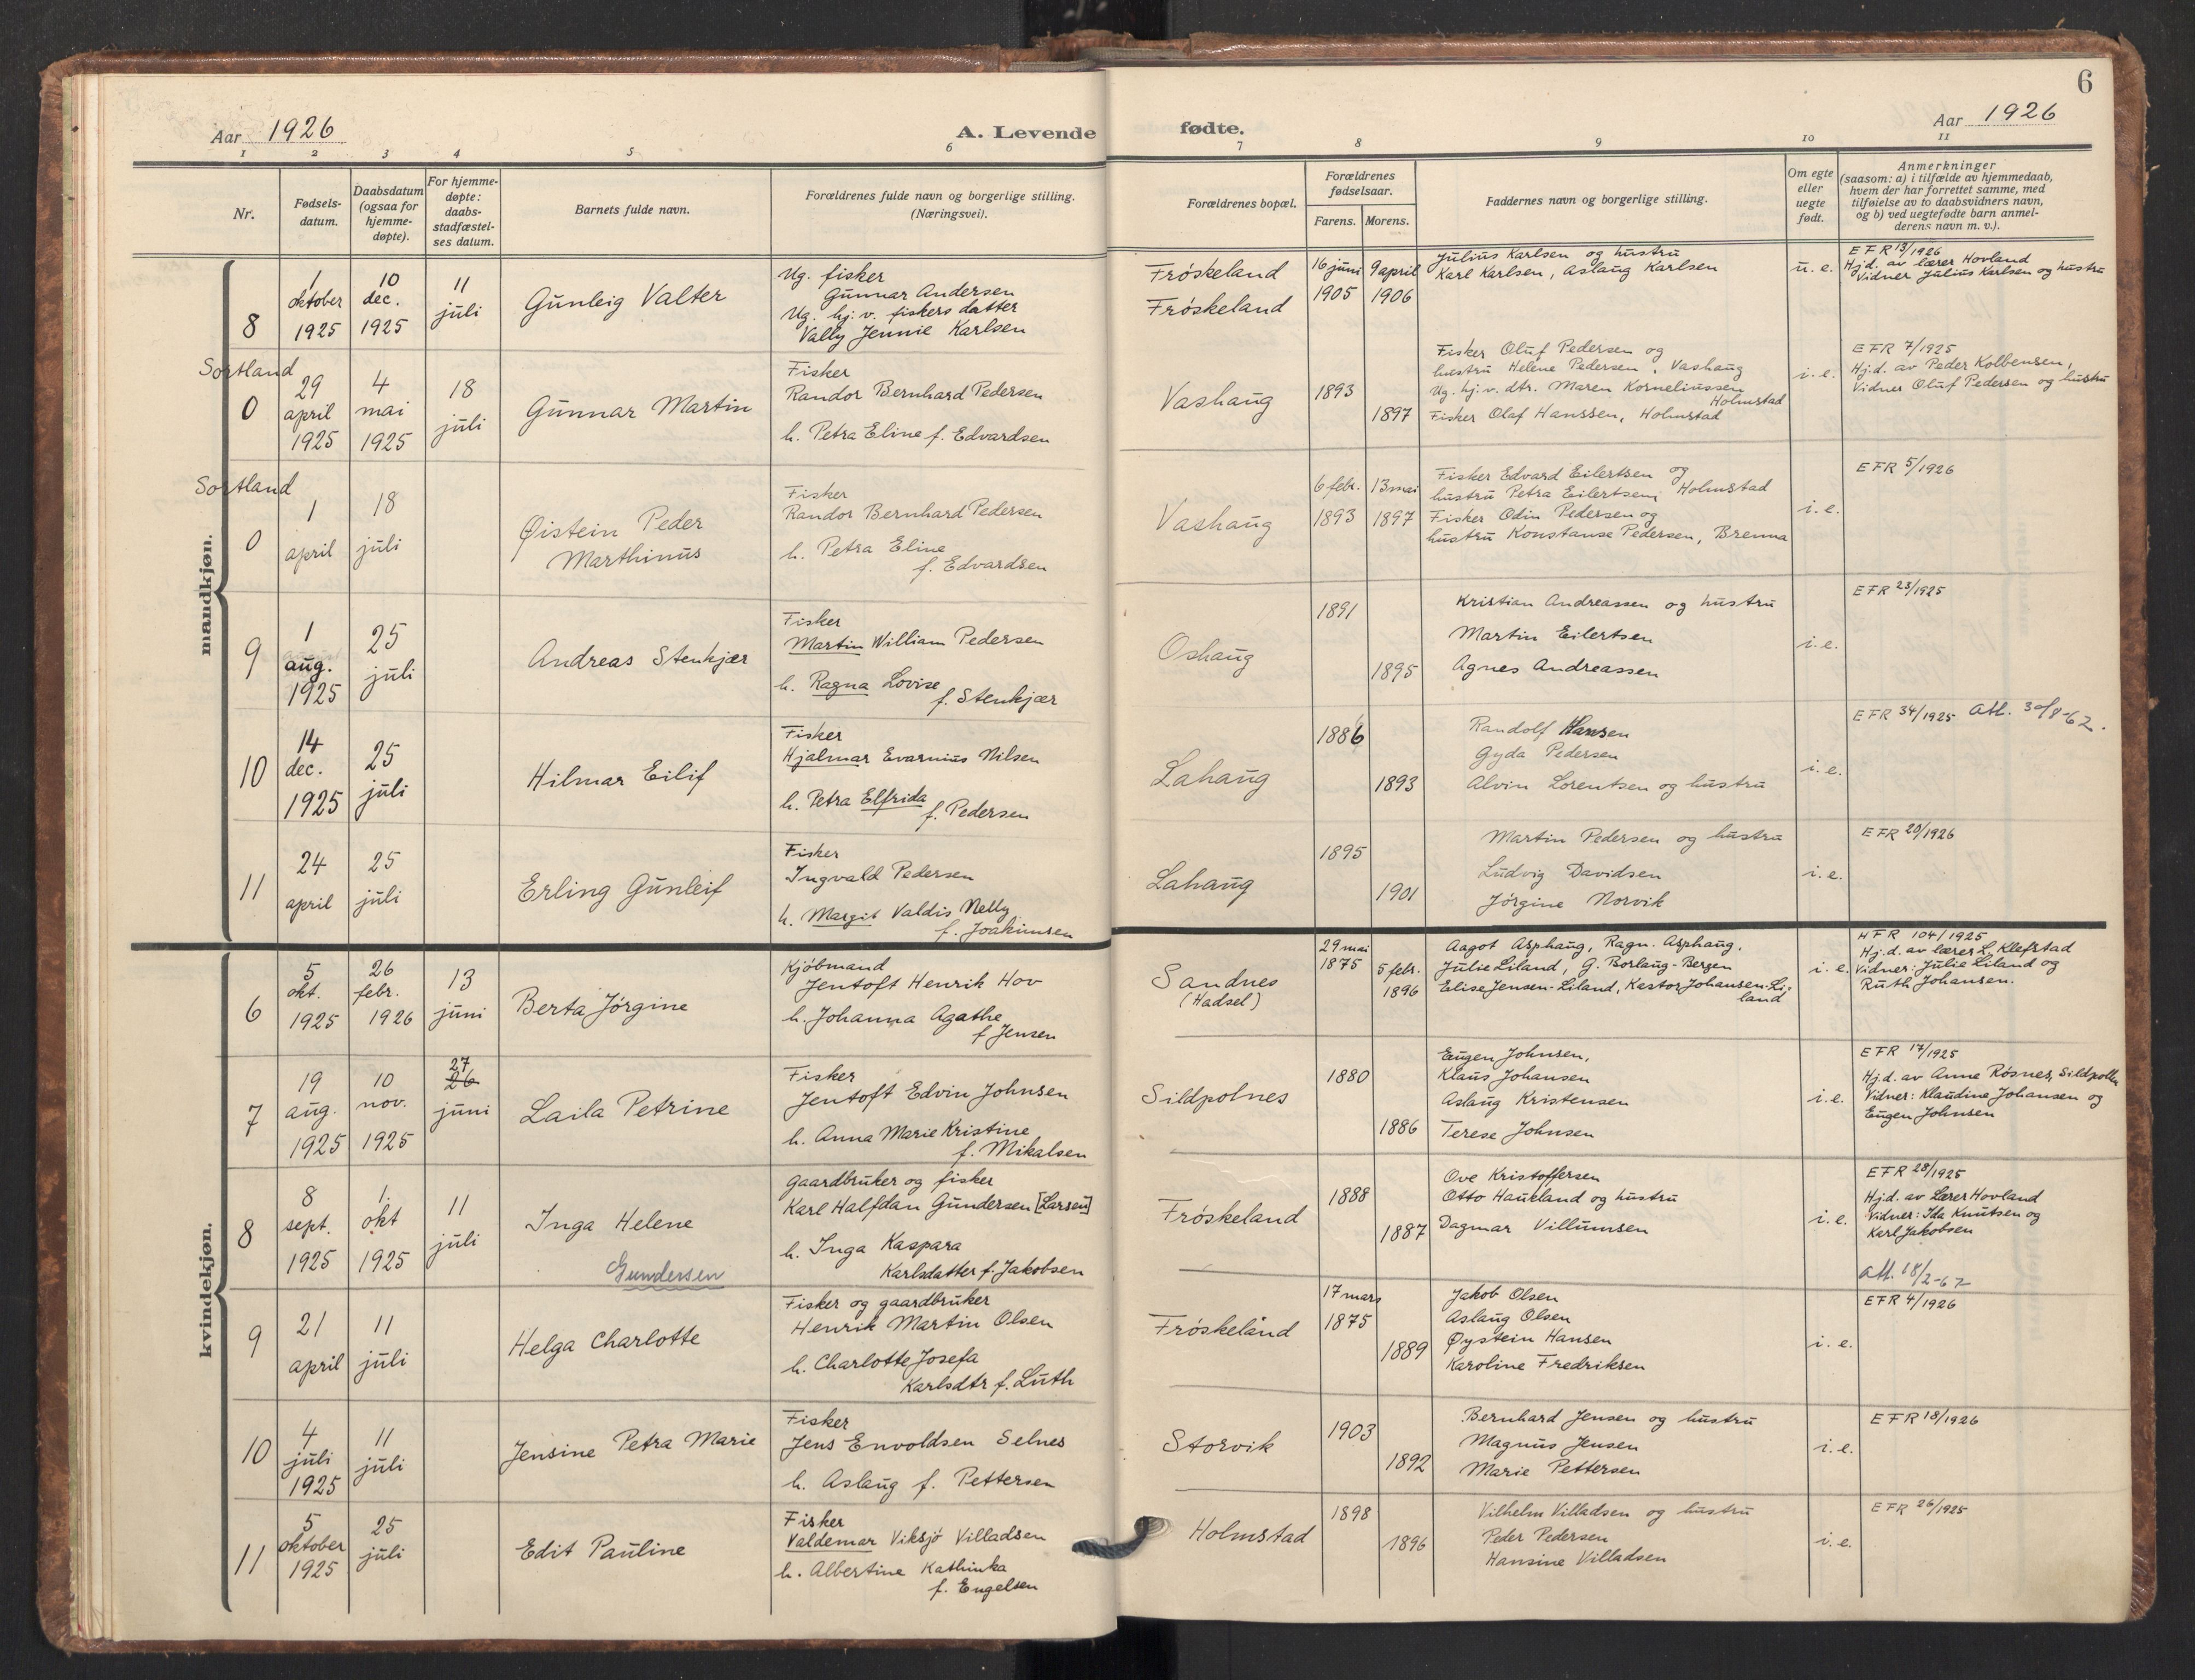 6
Aar 1926
A. Levende
fødte.
Aar 1926
1 2 3 4 5 6 7 8 9 10 11
Nr.
Fødsels-
datum.
Daabsdatum
(ogsaa for
hjemme-
døpte).
For hjemme-
døpte:
daabs-
stadfæstel-
ses datum.
Barnets fulde navn.
Forældrenes fulde navn og borgerlige stilling.
(Næringsvei).
Forældrenes bopæl.
Forældrenes
fødselsaar.
Farens. Morens.
Faddernes navn og borgerlige stilling.
Om egte
eller
uegte
født.
Anmerkninger
(saasom: a) i tilfælde av hjemmedaab,
hvem der har forrettet samme, med
tilføielse av to daabsvidners navn,
og b) ved uegtefødte barn anmel-
derens navn m. v.).
mandkjøn.
8
1
oktober
1925
10
dec.
1925
11
juli
Gunleig Valter
Ug. fisker
Gunnar Andersen
Ug. hj. v. fiskers datter
Vally Jennie Karlsen
Frøskeland
Frøskeland
16 juni
1905
9 april
1906
Julius Karlsen og hustru
Karl Karlsen, Aslaug Karlsen
u. e.
EFR 13/1926
Hj.d. av lærer Hovland
Vidner Julius Karlsen og hustru
Sortland
0
29
april
1925
4
mai
1925
18
juli
Gunnar Martin
Fisker
Randor Bernhard Pedersen
h. Petra Eline f. Edvardsen
Vashaug
1893
1897
Fisker Oluf Pedersen og
hustru Helene Pedersen, Vashaug
Ug. hj. v. dtr. Maren Korneliussen
Holmstad
Fisker Olaf Hanssen, Holmstad
i. e.
EFR 7/1925
Hj.d. av Peder Kolbensen,
Vidner Oluf Pedersen og hustru
Sortland
0
1
april
18
juli
Øistein Peder
Marthinus
Fisker
Randor Bernhard Pedersen
h. Petra Eline
f. Edvardsen
Vashaug
6 febr.
1893
13 mai
1897
Fisker Edvard Eilertsen og
hustru Petra Eilertsen, Holmstad
Fisker Odin Pedersen og
hustru Konstanse Pedersen, Brenna
i. e.
EFR 5/1926
9
1
aug.
1925
25
juli
Andreas Stenkjær
Fisker
Martin William Pedersen
h. Ragna Lovise
f. Stenkjær
Oshaug
1891
1895
Kristian Andreassen og hustru
Martin Eilertsen
Agnes Andreassen
i. e.
EFR 23/1925
10
14
dec.
1925
25
juli
Hilmar Eilif
Fisker
Hjalmar Evarnius Nilsen
h. Petra Elfrida
f. Pedersen
Lahaug
1886
1893
Randolf Hansen
Gyda Pedersen
Alvin Lorentsen og hustru
i. e.
EFR 34/1925 Att. 30/8-62.
11
24
april
25
juli
Erling Gunleif
Fisker
Ingvald Pedersen
h. Margit Valdis Nelly
f. Joakimsen
Lahaug
1895
1901
Martin Pedersen og hustru
Ludvig Davidsen
Jørgine Norvik
i. e.
EFR 20/1926
kvindekjøn.
6
5
okt.
1925
26
febr.
1926
13
juni
Berta Jørgine
Kjøbmand
Jentoft Henrik Hov
h. Johanna Agathe
f Jensen
Sandnes
(Hadsel)
29 mai
1875
5 febr.
1896
Aagot Asphaug, Ragn. Asphaug,
Julie Liland, G. Borlaug-Bergen
Elise Jensen-Liland, Kastor Johansen-Li-
land
i. e.
HFR 104/1925
Hj.d. av lærer L. Klefstad
Vidner: Julie Liland og
Ruth Johansen.
7
19
aug.
1925
10
nov.
1925
27
26
juni
Laila Petrine
Fisker
Jentoft Edvin Johnsen
h. Anna Marie Kristine
f. Mikalsen
Sildpolnes
1880
1886
Eugen Johnsen,
Klaus Johansen
Aslaug Kristensen
Terese Johnsen
i. e.
EFR 17/1925
Hj.d. av Anne Røsnes, Sildpollen
Vidner: Klaudine Johansen og
Eugen Johnsen
8
8
sept.
1925
1.
okt
1925
11
juli
Inga Helene
Gundersen
Gaardbruker og fisker
Karl Halfdan Gundersen [Larsen]
h. Inga Kaspara
Karlsdatter f. Jakobsen
Frøskeland
1888
1887
Ove Kristoffersen
Otto Haukland og hustru
Dagmar Villumsen
i. e.
EFR 28/1925
Hj.d. av Lærer Hovland
Vidner: Ida Knutsen og
Karl Jakobsen
Att. 18/2-67
9
21
april
11
juli
Helga Charlotte
Fisker og gaardbruker
Henrik Martin Olsen
h. Charlotte Josefa
Karlsdtr f. Luth
Frøskeland
17 mars
1875
1889
Jakob Olsen
Aslaug Olsen
Øystein Hansen
Karoline Fredriksen
i. e.
EFR 4/1926
10
4
juli
1925
11
juli
Jensine Petra Marie
Fisker
Jens Envoldsen Selnes
h. Aslaug f. Pettersen
Storvik
1903
1892
Bernhard Jensen og hustru
Magnus Jensen
Marie Pettersen
i. e.
EFR 18/1926
11
5
oktober
1925
25
juli
Edit Pauline
Fisker
Valdemar Viksjø Villadsen
h. Albertine Kathinka
f. Engelsen
Holmstad
1898
1896
Vilhelm Villadsen og hustru
Peder Pedersen
Hansine Villadsen
i. e.
EFR 26/1925